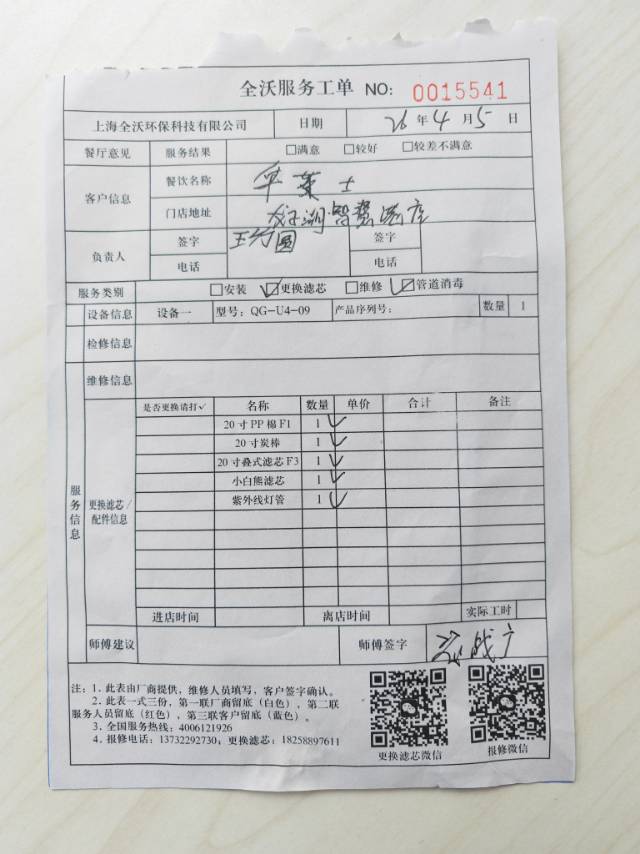 全沃服务工单 NO: 0015541
上海全沃环保科技有限公司 日期 26 年 4 月 5 日
餐厅意见 服务结果 □满意 □较好 □较差不满意
客户信息 餐饮名称 华莱士
门店地址 智慧
负责人 签字 王 圆 签字
电话 电话
服务类别 □安装 ☑更换滤芯 □维修 ☑管道消毒
设备信息 设备一 型号: QG-U4-09 产品序列号: 数量 1
检修信息
维修信息
服务信息
更换滤芯/配件信息
是否更换请打✓ 名称 数量 单价 合计 备注
20寸PP棉F1 1 ✓
20寸炭棒 1 ✓
20寸叠式滤芯F3 1 ✓
小白熊滤芯 1 ✓
紫外线灯管 1 ✓
进店时间 离店时间 实际工时
师傅建议 师傅签字
注: 1. 此表由厂商提供, 维修人员填写, 客户签字确认。
2. 此表一式三份, 第一联厂商留底 (白色), 第二联
服务人员留底 (红色), 第三联客户留底 (蓝色)。
3. 全国服务热线: 4006121926
4. 报修电话: 13732292730; 更换滤芯: 18258897611
更换滤芯微信 报修微信